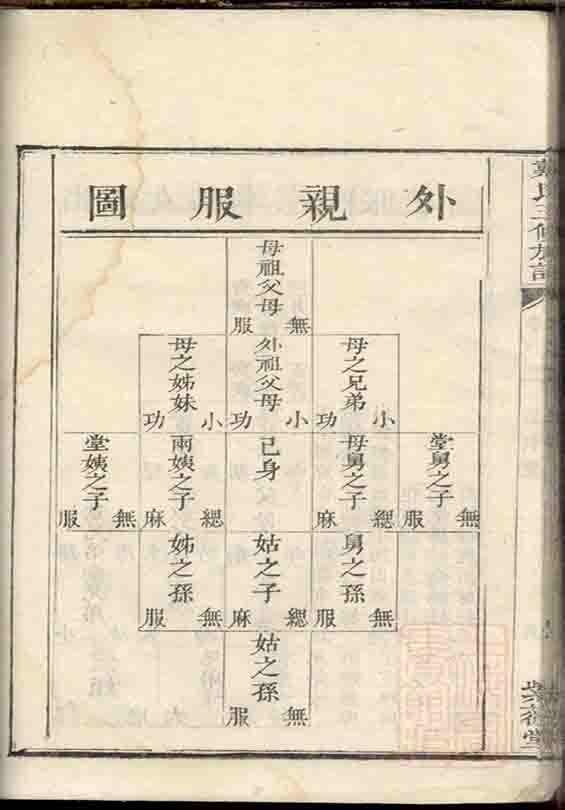 外親服圖
母祖父母
無服
母之兄弟
小功
外祖父母
小功
母之姊妹
小功
堂舅之子
無服
母舅之子
緦麻
己身
兩姨之子
緦麻
堂姨之子
無服
舅之孫
無服
姑之子
緦麻
姊之孫
無服
姑之孫
無服